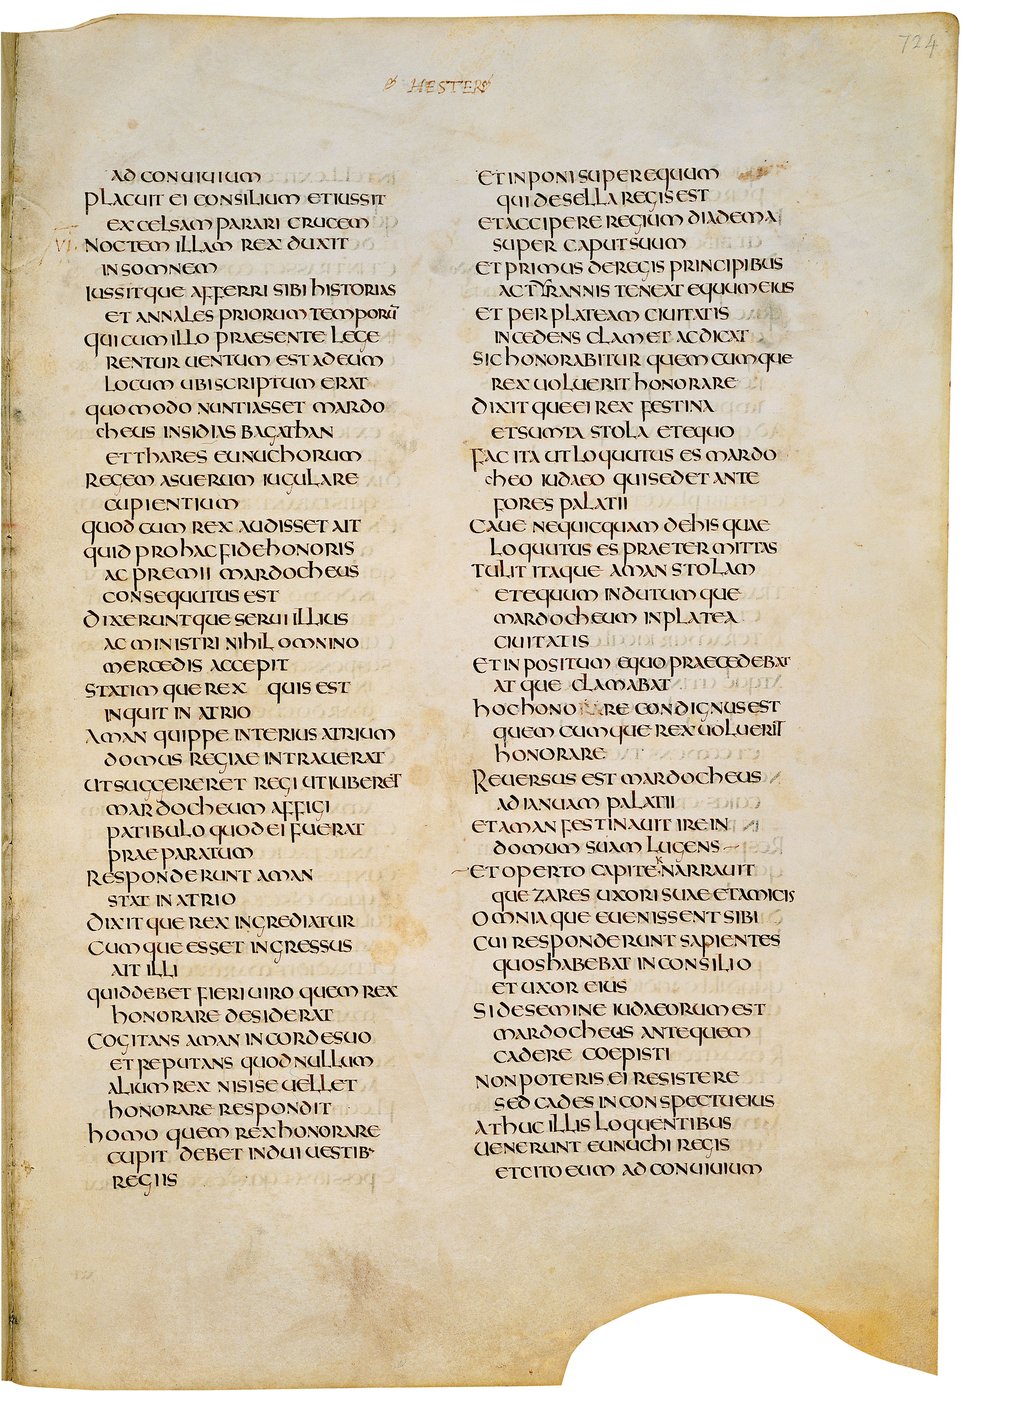 724
HESTER
AD CONUIUIUM
PLACUIT EI CONSILIUM ET IUSSIT
EXCELSAM PARARI CRUCEM
VI NOCTEM ILLAM REX DUXIT
INSOMNEM
IUSSITQUE AFFERRI SIBI HISTORIAS
ET ANNALES PRIORUM TEMPORŪ
QUI CUM ILLO PRAESENTE LEGE
RENTUR UENTUM EST AD EUM
LOCUM UBI SCRIPTUM ERAT
QUOMODO NUNTIASSET MARDO
CHEUS INSIDIAS BAGATHAN
ET THARES EUNUCHORUM
REGEM ASUERUM IUGULARE
CUPIENTIUM
QUOD CUM REX AUDISSET AIT
QUID PRO HAC FIDE HONORIS
AC PREMII MARDOCHEUS
CONSEQUUTUS EST
DIXERUNTQUE SERUI ILLIUS
AC MINISTRI NIHIL OMNINO
MERCEDIS ACCEPIT
STATIMQUE REX QUIS EST
INQUIT IN ATRIO
AMAN QUIPPE INTERIUS ATRIUM
DOMUS REGIAE INTRAUERAT
UT SUGGERERET REGI UT IUBERET
MARDOCHEUM AFFIGI
PATIBULO QUOD EI FUERAT
PRAEPARATUM
RESPONDERUNT AMAN
STAT IN ATRIO
DIXITQUE REX INGREDIATUR
CUMQUE ESSET INGRESSUS
AIT ILLI
QUID DEBET FIERI UIRO QUEM REX
HONORARE DESIDERAT
COGITANS AMAN IN CORDE SUO
ET REPUTANS QUOD NULLUM
ALIUM REX NISI SE UELLET
HONORARE RESPONDIT
HOMO QUEM REX HONORARE
CUPIT DEBET INDUI UESTIB·
REGIIS
ET INPONI SUPER EQUUM
QUI DE SELLA REGIS EST
ET ACCIPERE REGIUM DIADEMA
SUPER CAPUT SUUM
ET PRIMUS DE REGIS PRINCIPIBUS
AC TYRANNIS TENEAT EQUUM EIUS
ET PER PLATEAM CIUITATIS
INCEDENS CLAMET AC DICAT
SIC HONORABITUR QUEMCUMQUE
REX UOLUERIT HONORARE
DIXITQUE EI REX FESTINA
ET SUMTA STOLA ET EQUO
FAC ITA UT LOQUUTUS ES MARDO
CHEO IUDAEO QUI SEDET ANTE
FORES PALATII
CAUE NE QUICQUAM DE HIS QUAE
LOQUUTUS ES PRAETERMITTAS
TULIT ITAQUE AMAN STOLAM
ET EQUUM INDUTUMQUE
MARDOCHEUM IN PLATEA
CIUITATIS
ET INPOSITUM EQUO PRAECEDEBAT
ATQUE CLAMABAT
HOC HONORE CONDIGNUS EST
QUEMCUMQUE REX UOLUERIT
HONORARE
REUERSUS EST MARDOCHEUS
AD IANUAM PALATII
ET AMAN FESTINAUIT IRE IN
DOMUM SUAM LUGENS
ET OPERTO CAPITE NARRAUIT
QUE ZARES UXORI SUAE ET AMICIS
OMNIA QUE EUENISSENT SIBI
CUI RESPONDERUNT SAPIENTES
QUOS HABEBAT IN CONSILIO
ET UXOR EIUS
SI DE SEMINE IUDAEORUM EST
MARDOCHEUS ANTE QUEM
CADERE COEPISTI
NON POTERIS EI RESISTERE
SED CADES IN CONSPECTU EIUS
ATHUC ILLIS LOQUENTIBUS
UENERUNT EUNUCHI REGIS
ET CITO EUM AD CONUIUIUM